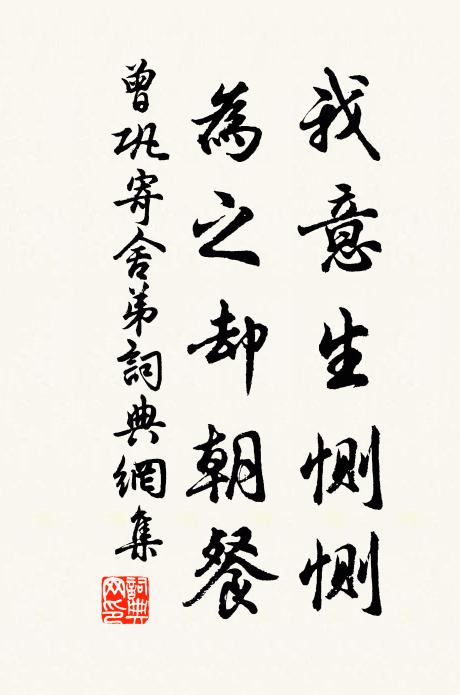 我意生惻惻
為之却朝餐
曾巩寄舍弟詞典網集
詞典
网印